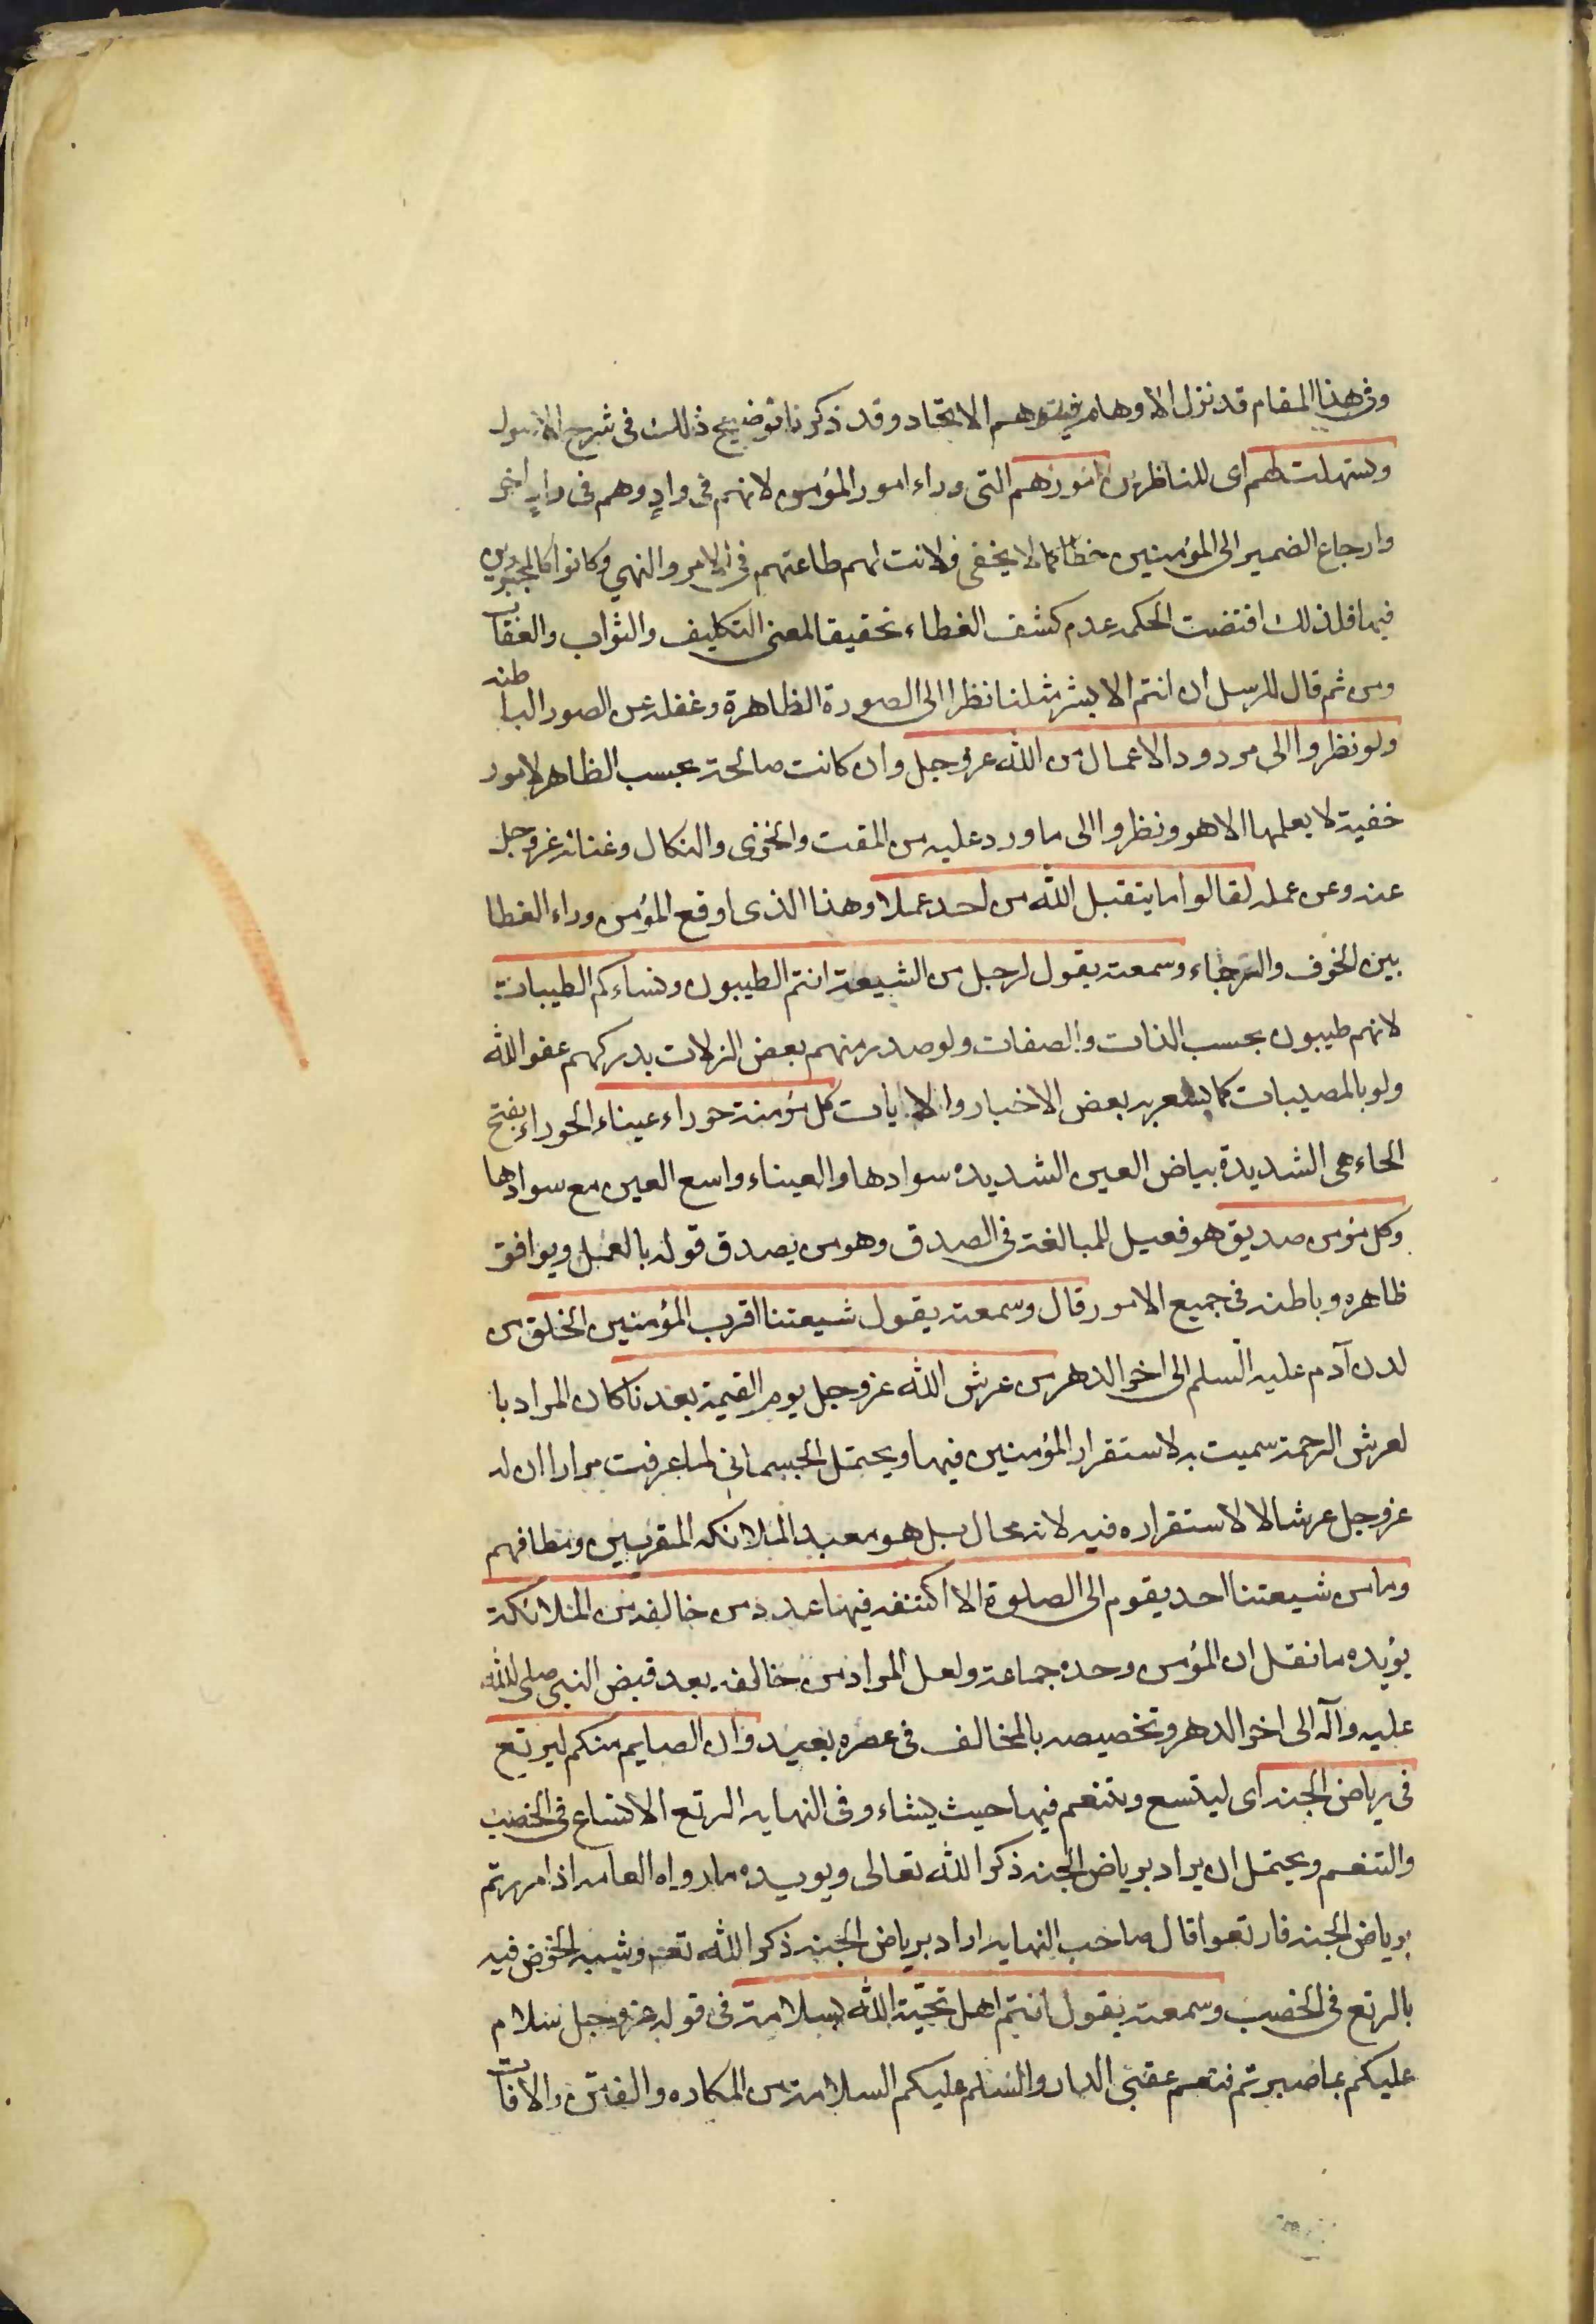 وفى هذا المقام قد نزل الاوهام فيتوهم الاتحاد وقد ذكرنا توضيح ذلك فى شرح الاصول
وستهلت لهم اى للناظرين امورهم التى وراء امور المؤمن لانهم فى وادٍ وهم فى وادٍ اخر
وارجاع الضمير الى المؤمنين خطا كما لا يخفى ولانت لهم طاعتهم فى الامر والنهي وكانوا كالمجبورين
فيها فلذلك اقتضت الحكمه عدم كشف الغطاء تحقيقا لمعنى التكليف والثواب والعقاب
ومن ثم قال للرسل ان انتم الا بشر مثلنا نظرا الى الصورة الظاهرة وغفلة عن الصور الباطنه
ولو نظروا الى مردود الاعمال من الله عز وجل وان كانت صالحة بحسب الظاهر لامور
خفية لا يعلمها الا هو ونظروا الى ما ورد عليه من المقت والخزى والنكال وغنائه عز وجل
عنه وعن عمله لقالوا ما يتقبل الله من احد عملا وهذا الذى اوقع المؤمن وراء الغطا
بين الخوف والرجاء وسمعته يقول لرجل من الشيعة انتم الطيبون ونساءكم الطيبات
لانهم طيبون بحسب الذات والصفات ولو صدر منهم بعض الزلات يدركهم عفو الله
ولو بالمصيبات كما يشعر به بعض الاخبار والايات كل مؤمنة حوراء عيناء الحوراء بفتح
الحاء هى الشديدة بياض العين الشديده سوادها والعيناء واسع العين مع سوادها
وكل مؤمن صديق هو فعيل للمبالغة فى الصدق وهو من يصدق قوله بالعمل ويوافق
ظاهره وباطنه فى جميع الامور قال وسمعته يقول شيعتنا اقرب المؤمنين الخلق من
لدن آدم عليه السلم الى اخر الدهر من عرش الله عز وجل يوم القيمة بعدنا كان المراد با
لعرش الرحمة سميت به لاستقرار المؤمنين فيها ويحتمل الجسمانى لما عرفت مرارا ان له
عز وجل عرشا لا لاستقراره فيه لانه محال بل هو معبد الملائكه المقربين ومطافهم
وما من شيعتنا احد يقوم الى الصلوة الا اكتنفه فيها عدد من خالفه من الملائكة
يؤيده ما نقل ان المؤمن وحده جماعة ولعل المراد من خالفه بعد قبض النبى صلى الله
عليه وآله الى اخر الدهر وتخصيصه بالمخالف فى عصره بعيد وان الصايم منكم ليرتع
فى رياض الجنه اى ليتسع ويتنعم فيها حيث يشاء وفى النهايه الرتع الاتساع فى الخصب
والتنعم ويحتمل ان يراد برياض الجنه ذكر الله تعالى ويويده ما رواه العامه اذا مررتم
برياض الجنه فارتعوا قال صاحب النهايه اراد برياض الجنه ذكر الله تعه وشبه الخوض فيه
بالرتع فى الخصب وسمعته يقول انتم اهل تحيّة الله بسلامته فى قوله عز وجل سلام
عليكم بما صبرتم فنعم عقبى الدار والسلم عليكم السلامة من المكاره والفتن والافات